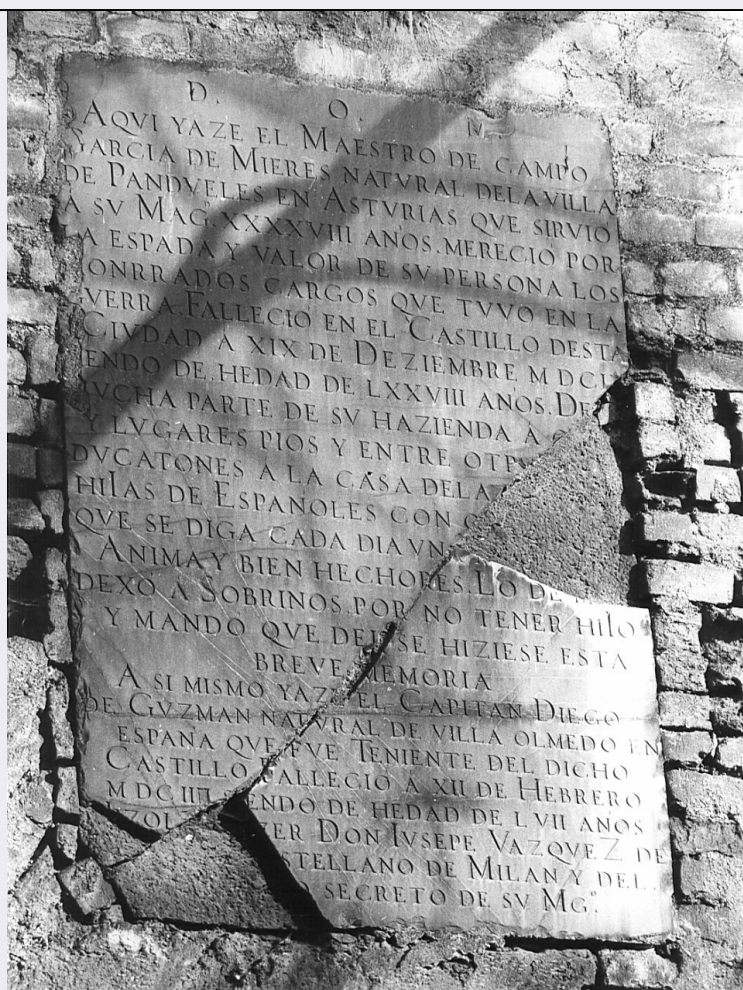 D. O. M.
AQVI YAZE EL MAESTRO DE CAMPO
GARCIA DE MIERES NATVRAL DE LA VILLA
DE PANDVELES EN ASTVRIAS QVE SIRVIO
A SV MAG. XXXXVIII ANOS. MERECIO POR
LA ESPADA Y VALOR DE SV PERSONA LOS
ONRRADOS CARGOS QVE TVVO EN LA
GVERRA. FALLECIO EN EL CASTILLO DESTA
CIVDAD A XIX DE DEZIEMBRE M DCI
ENDO DE HEDAD DE LXXVIII ANOS. DE
VCHA PARTE DE SV HAZIENDA A
Y LVGARES PIOS Y ENTRE
DVCATONES A LA CASA DELA
HIIAS DE ESPANOLES CON
QVE SE DIGA CADA DIA VN
ANIMA Y BIEN HECHORES. LO
DEXO A SOBRINOS. POR NO TENER HIIO
Y MANDO QVE DEL SE HIZIESE ESTA
BREVE MEMORIA
A SI MISMO YAZE EL CAPITAN DIEGO
DE GVZMAN NATVRAL DE VILLA OLMEDO EN
ESPANA QVE FVE TENIENTE DEL DICHO
CASTILLO FALLECIO A XII DE HEBRERO
M DC III ENDO DE HEDAD DE LVII ANOS
ZER DON IVSEPE VAZQVEZ DE
STELLANO DE MILAN Y DEL
SECRETO DE SV MG.